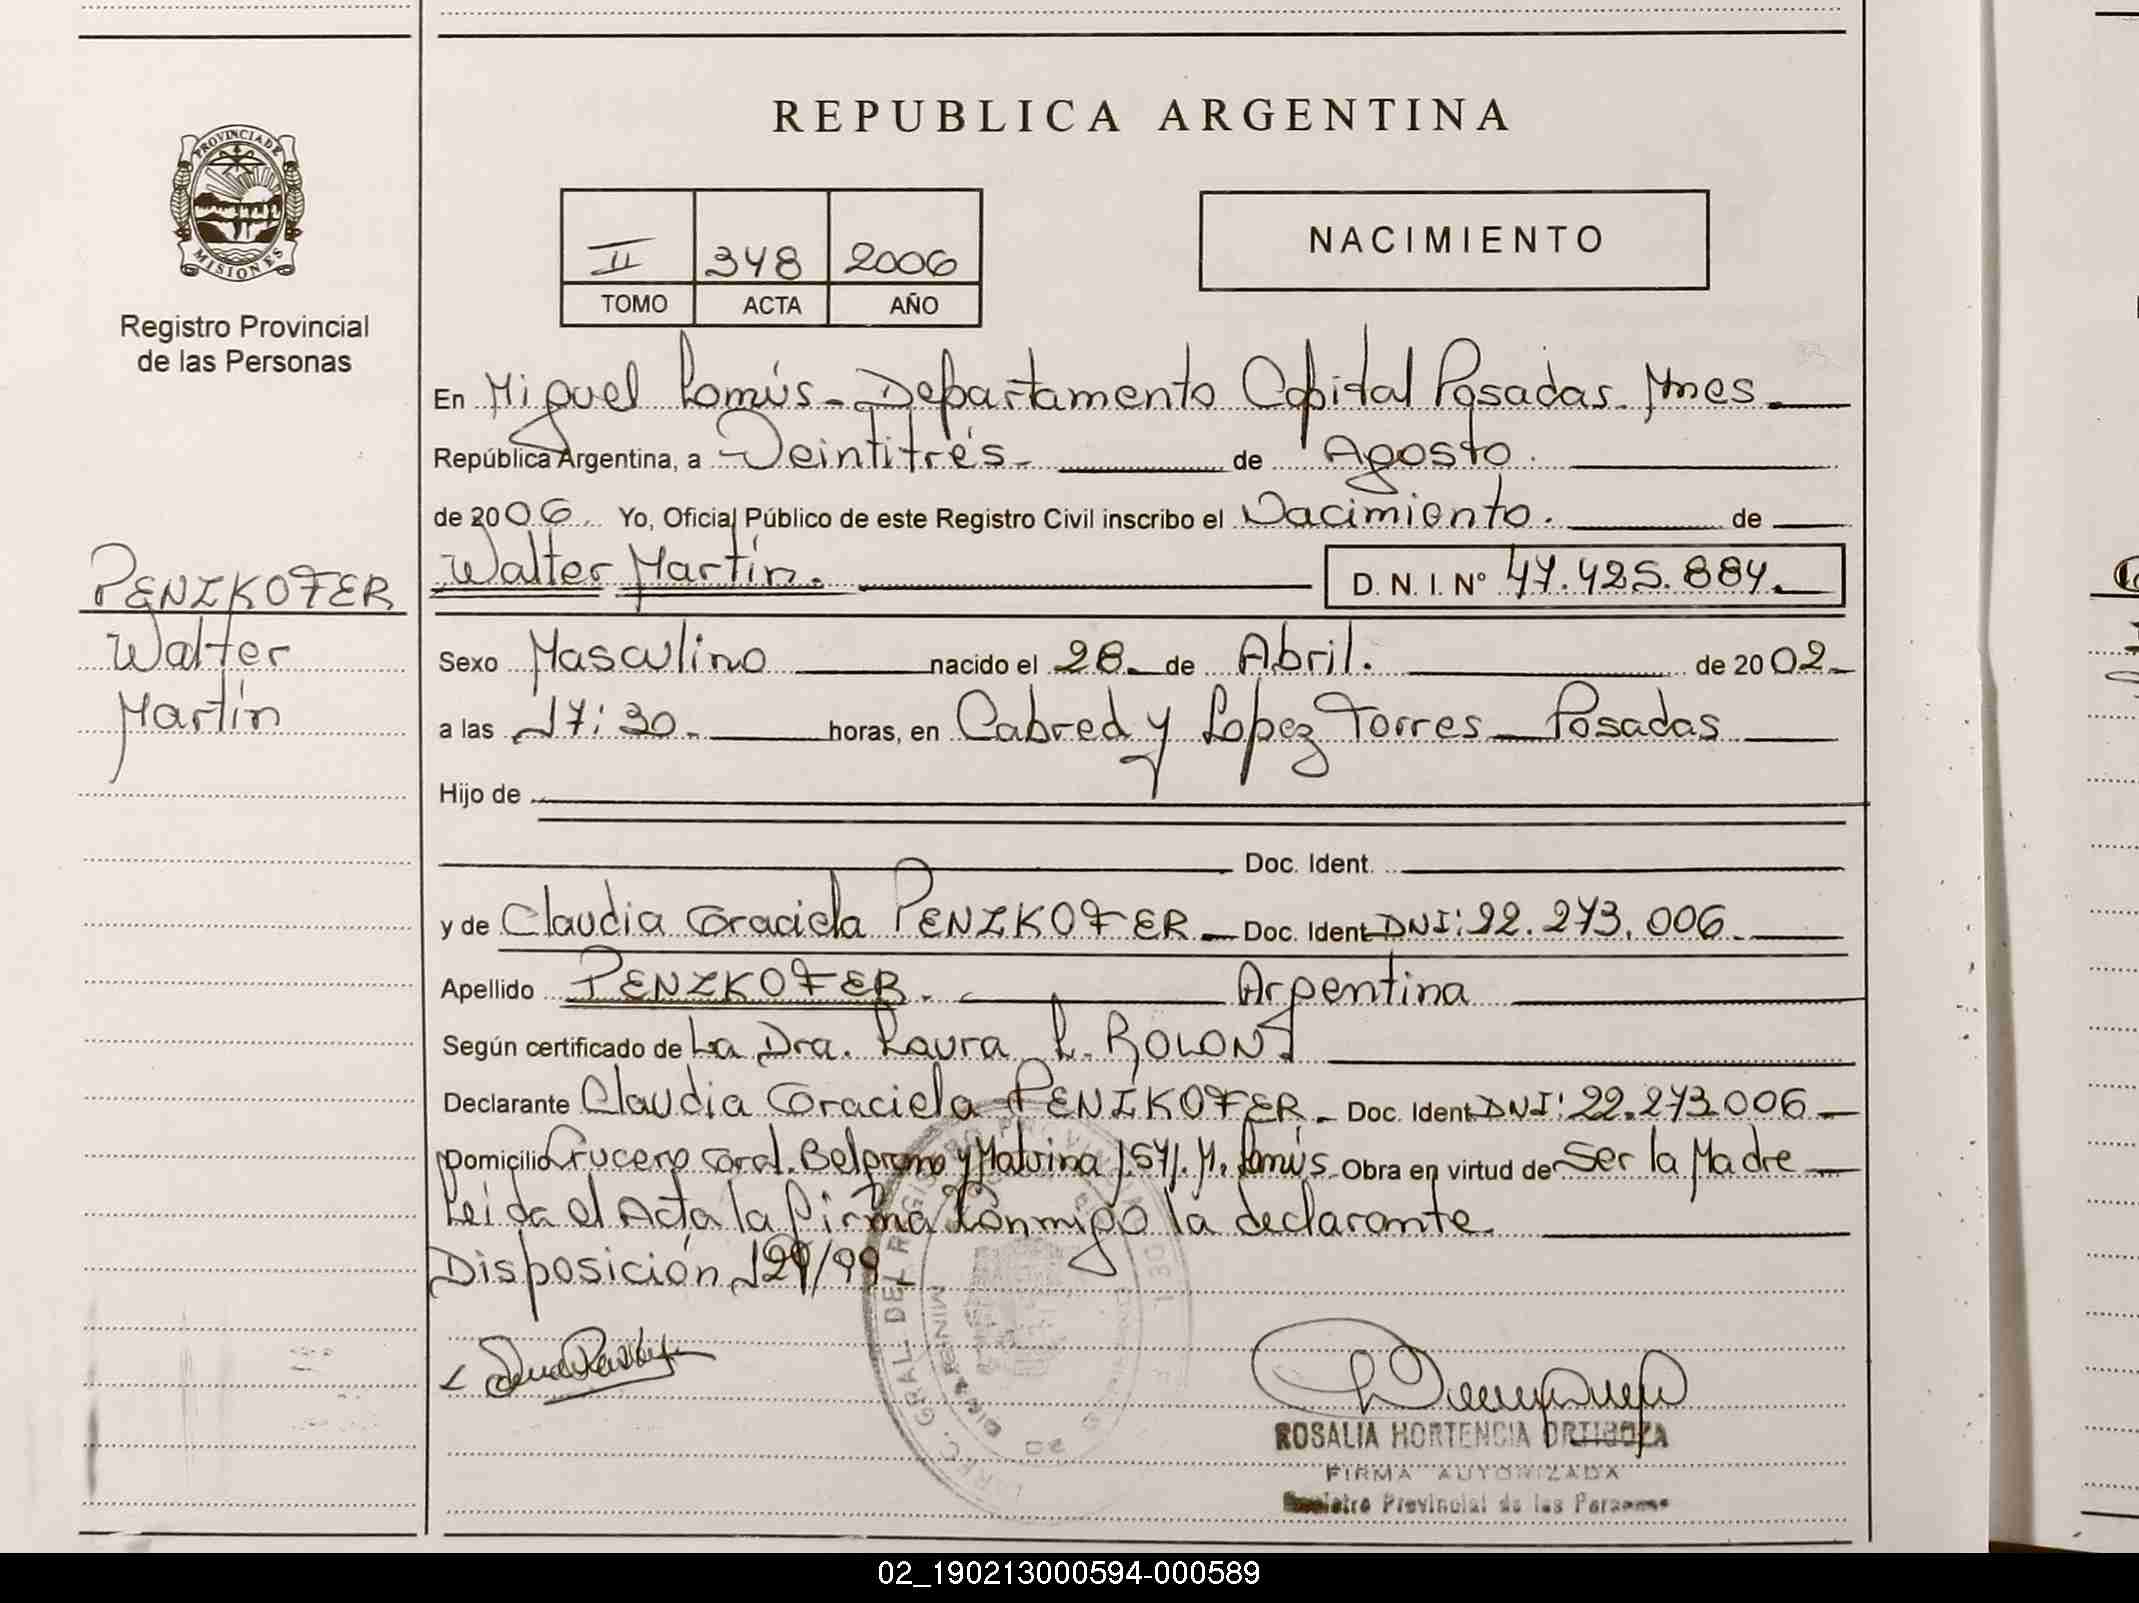 PROVINCIA DE
MISIONES
Registro Provincial
de las Personas
PENZKOFER
Walter
Martín
REPUBLICA ARGENTINA
II 348 2006
TOMO ACTA AÑO
NACIMIENTO
En Miguel Lanús - Departamento Capital Posadas - Mnes
República Argentina, a Veintitrés - de Agosto.
de 2006 Yo, Oficial Público de este Registro Civil inscribo el Nacimiento. de
Walter Martín. D. N. I. Nº 47.425.884.
Sexo Masculino nacido el 28 de Abril. de 2002
a las 17:30 horas, en Cabred y Lopez Torres - Posadas
Hijo de
Doc. Ident.
y de Claudia Graciela PENZKOFER - Doc. Ident DNI: 22.273.006.
Apellido PENZKOFER. Argentina
Según certificado de La Dra. Laura L. ROLON
Declarante Claudia Graciela PENZKOFER - Doc. Ident DNI: 22.273.006
Domicilio Crucero Gral. Belgrano y Malvina M. Lanús Obra en virtud de Ser la Madre
Leida el Acta la firma conmigo la declarante.
Disposición 129/99
ROSALIA HORTENCIA ORTIGOZA
FIRMA AUTORIZADA
Registro Provincial de las Personas
02_190213000594-000589